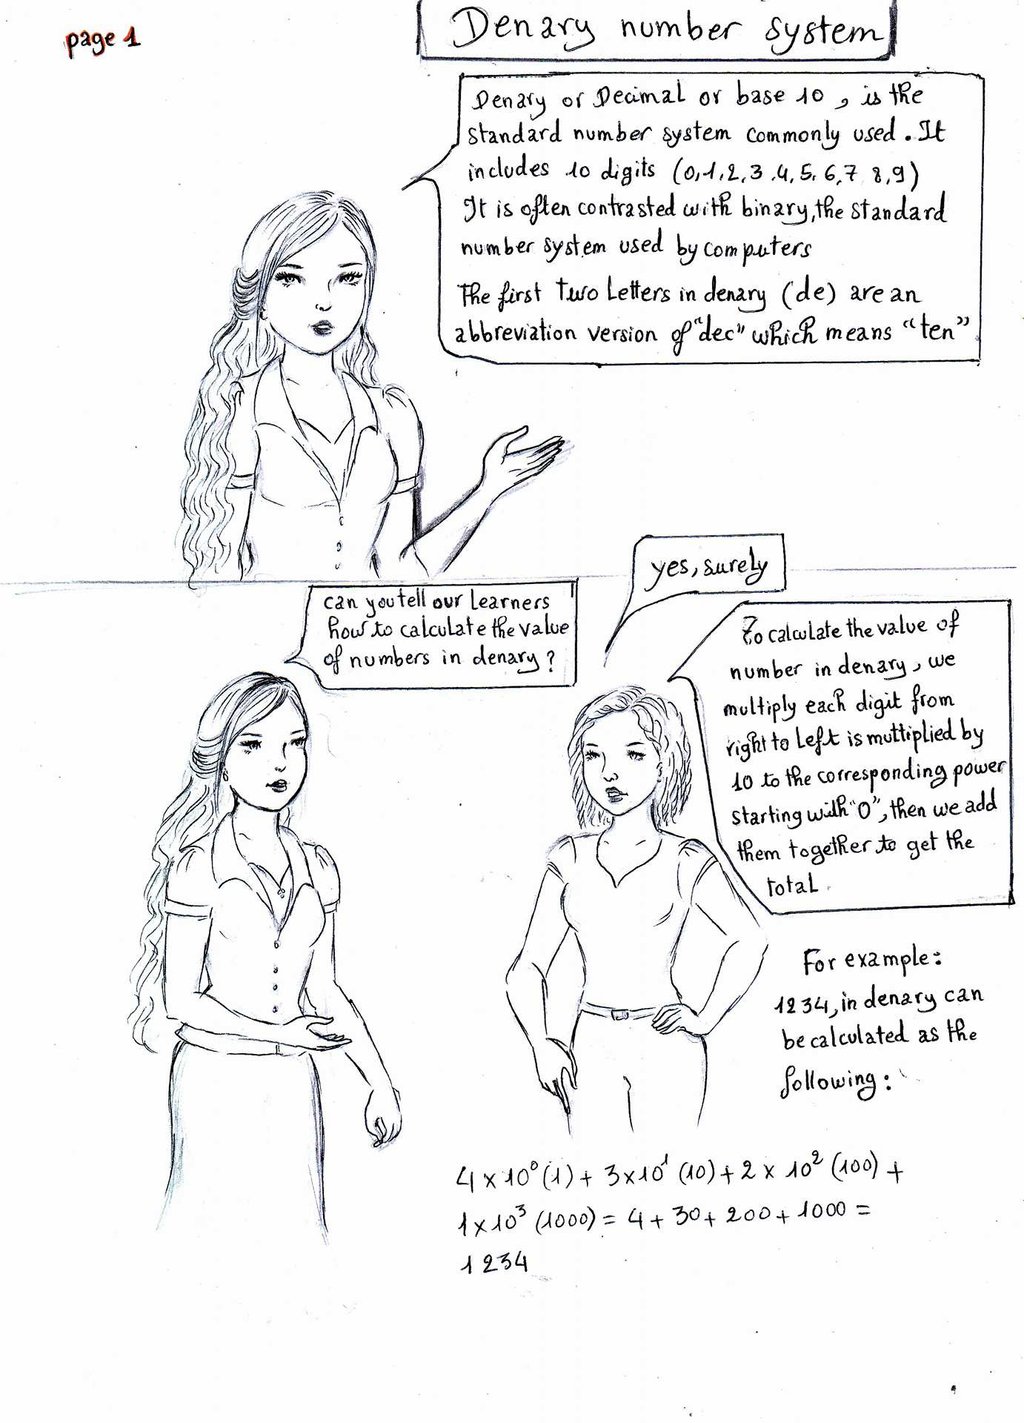 page 1
Denary number system
Denary or Decimal or base 10, is the
standard number system commonly used. It
includes 10 digits (0,1,2,3,4,5,6,7 8,9)
It is often contrasted with binary, the standard
number system used by computers
The first two letters in denary (de) are an
abbreviation version of "dec" which means "ten"
can you tell our learners
how to calculate the value
of numbers in denary?
yes, surely
To calculate the value of
number in denary, we
multiply each digit from
right to left is multiplied by
10 to the corresponding power
starting with "0", then we add
them together to get the
total.
For example:
1234, in denary can
be calculated as the
following:
4 × 10⁰ (1) + 3 × 10¹ (10) + 2 × 10² (100) +
1 × 10³ (1000) = 4 + 30 + 200 + 1000 =
1234